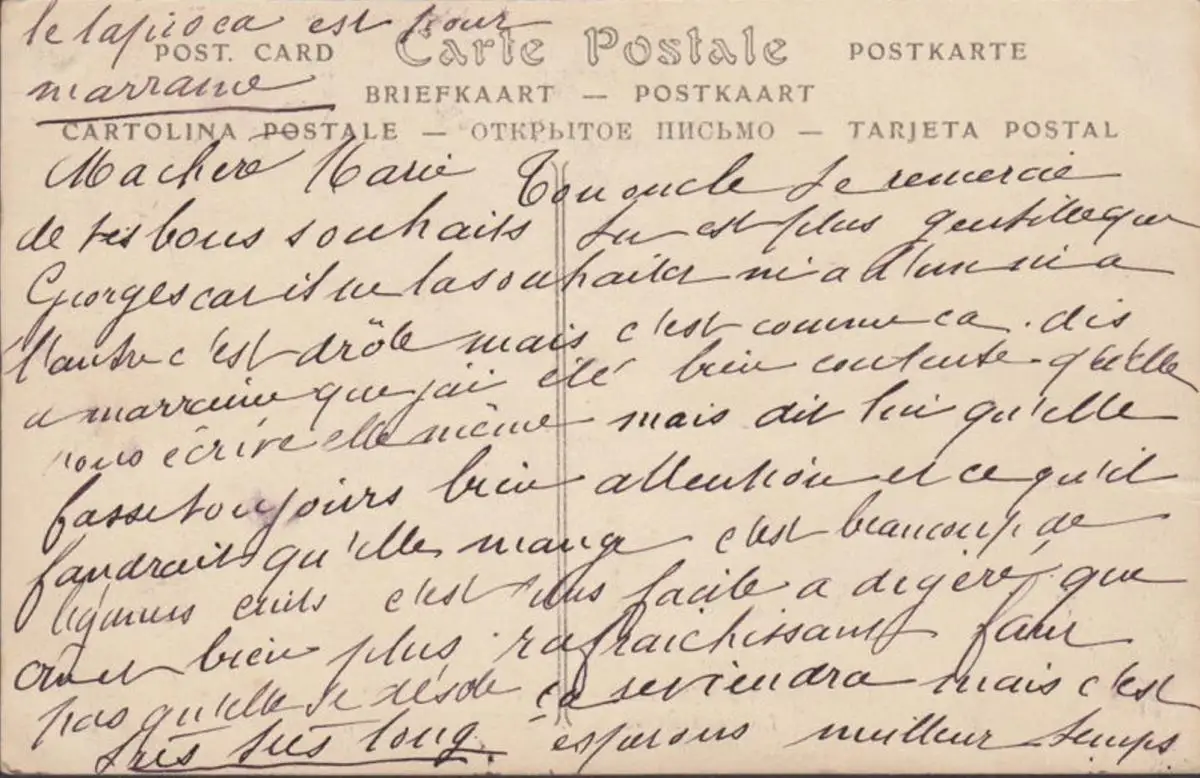 le tapioca est pour
POST. CARD Carte Postale POSTKARTE
marraine
BRIEFKAART — POSTKAART
CARTOLINA POSTALE — ОТКРЫТОЕ ПИСЬМО — TARJETA POSTAL
Ma chere Marie Ton oncle te remercie
de tes bons souhaits tu est plus gentille que
Georges car il ne la souhaiter ni a l'un ni a
l'autre c'est drôle mais c'est comme ca. dis
a marraine que j'ai été bien contente qu'elle
nous écrive elle même mais dit lui qu'elle
fasse toujours bien attention et ce qu'il
faudrait qu'elle mange c'est beaucoup de
légumes cuits c'est plus facile a digéré que
cru et bien plus rafraichissant faut
pas qu'elle se désole ça reviendra mais c'est
très très long. espérons meilleur temps